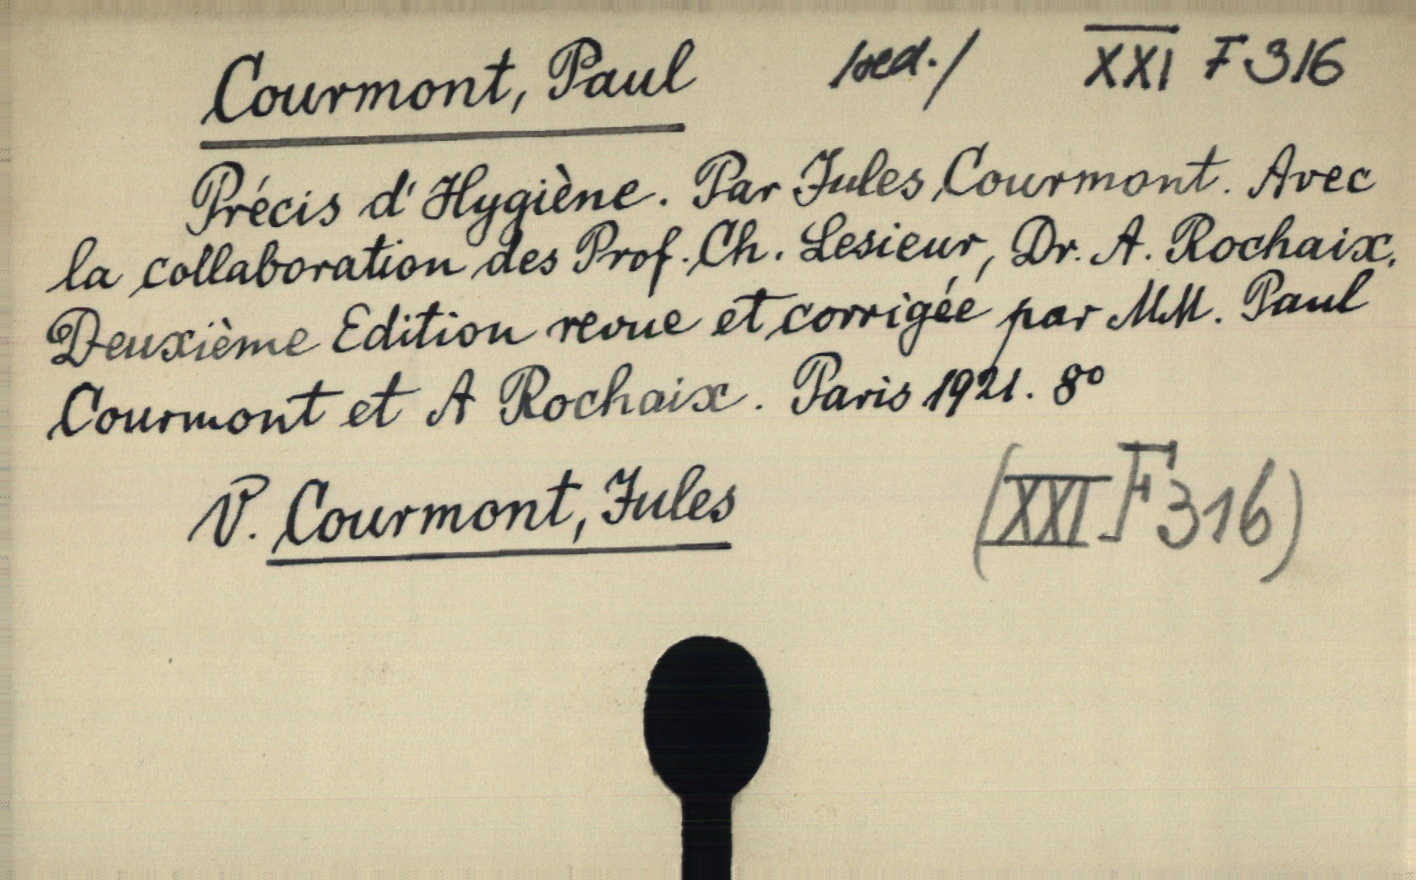 Courmont, Paul /red./ XXI F 316
Précis d'Hygiène. Par Jules Courmont. Avec
la collaboration des Prof. Ch. Lesieur, Dr. A. Rochaix.
Deuxième Edition revue et corrigée par MM. Paul
Courmont et A Rochaix. Paris 1921. 8º
V. Courmont, Jules (XXI F 316)